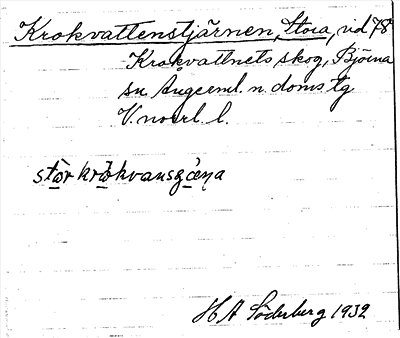 Krokvattenstjärnen, Stora, vid 78
Krokvattnets skog, Björna
sn. Ångerml. n. doms tg
V. norrl. l.
stòr kròkvansʒǽṇa
H A Söderberg 1932